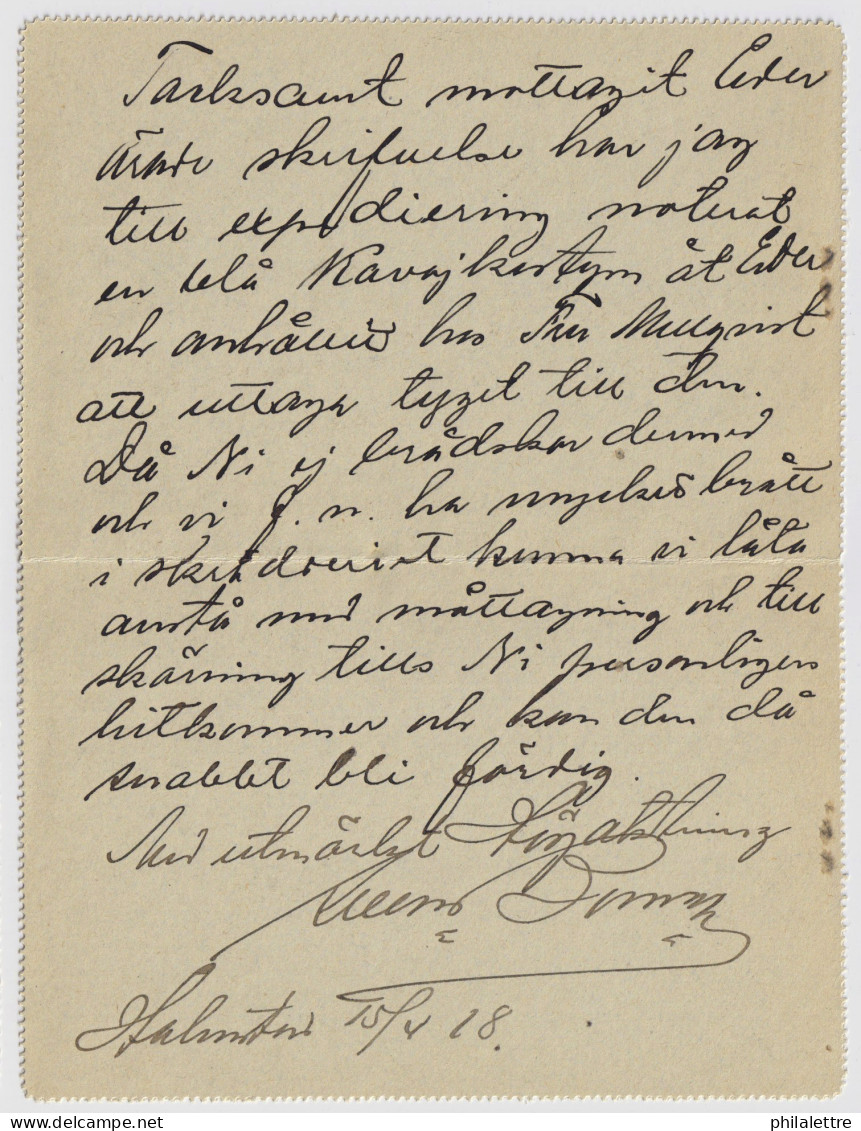 Tacksamt mottagit Eder
ärade skrifvelse har jag
till expediering noterat
en blå Kavajkostym åt Eder
och anhållit hos Fru
att uttaga tyget till den.
Då Ni ej brådskar dermed
och vi f. n. ha mycket brått
i skrädderiet kunna vi låta
anstå med måttagning och till
skärning tills Ni personligen
hitkommer och kan den då
snabbt bli färdig.
Med utmärkt Högaktning
Halmstad 15/4 18.
philalettre